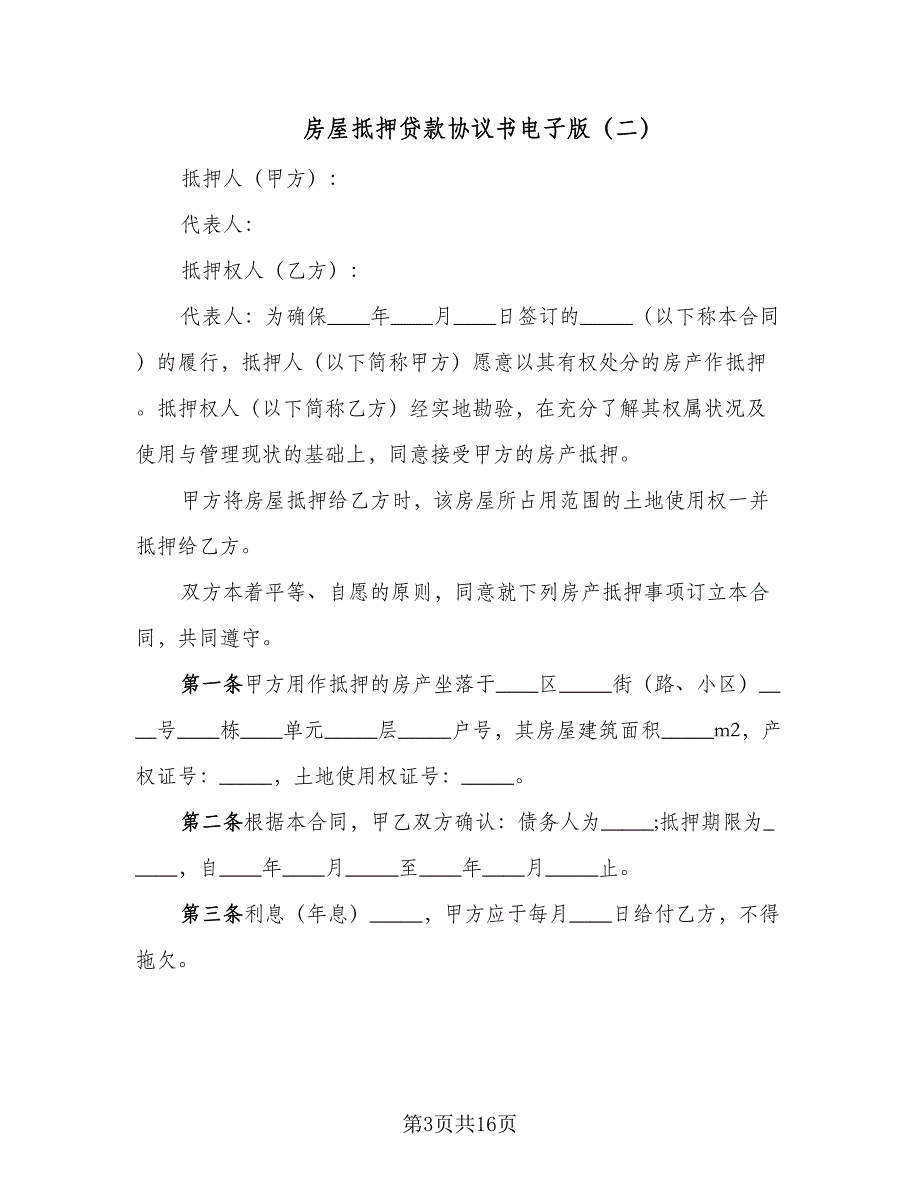 房屋抵押贷款协议书电子版（二）
抵押人（甲方）：
代表人：
抵押权人（乙方）：
代表人：为确保____年____月____日签订的_____（以下称本合同
）的履行，抵押人（以下简称甲方）愿意以其有权处分的房产作抵押
。抵押权人（以下简称乙方）经实地勘验，在充分了解其权属状况及
使用与管理现状的基础上，同意接受甲方的房产抵押。
甲方将房屋抵押给乙方时，该房屋所占用范围的土地使用权一并
抵押给乙方。
双方本着平等、自愿的原则，同意就下列房产抵押事项订立本合
同，共同遵守。
第一条甲方用作抵押的房产坐落于____区_____街（路、小区）__
__号____栋____单元_____层_____户号，其房屋建筑面积_____m2，产
权证号：_____，土地使用权证号：_____。
第二条根据本合同，甲乙双方确认：债务人为_____;抵押期限为_
____，自____年____月_____至____年____月_____止。
第三条利息（年息）_____，甲方应于每月____日给付乙方，不得
拖欠。
第3页共16页